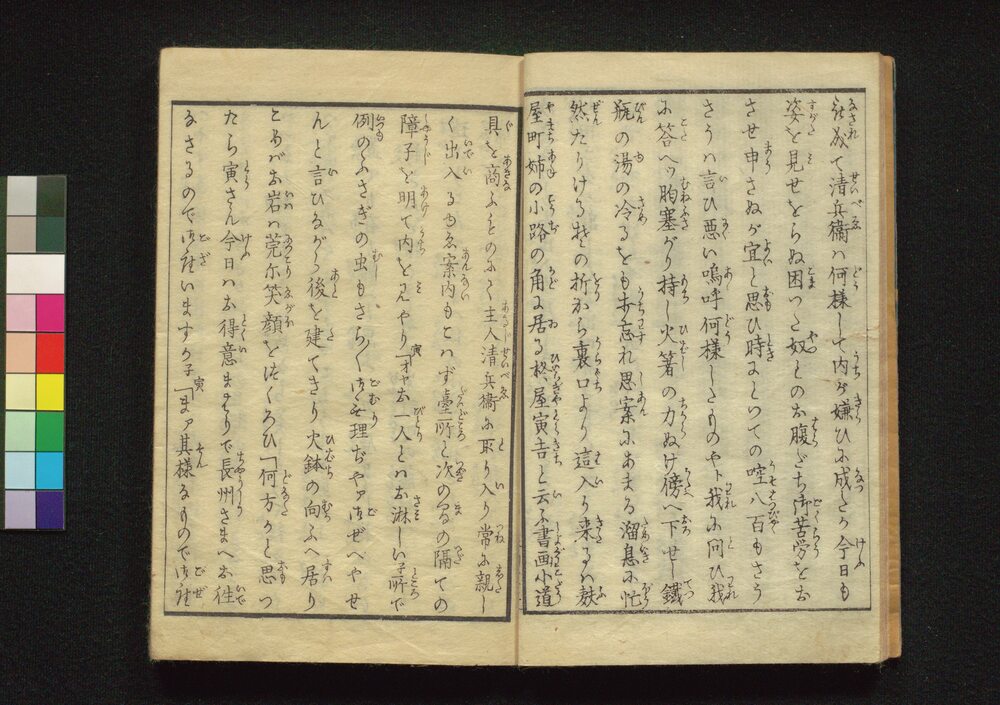 成て清兵衞ハ何様して内が嫌ひに成しか今日も
姿を見せをらぬ困つた奴との お腹だち御苦労をお
させ申さぬが宜と思ひ時にとつての啌八百もさう
さうハ言ひ悪い嗚呼何様したものやト我に問ひ我
に答へツ胸塞がり持し火箸の力ぬけ傍へ下せし鐵
瓶の湯の冷るをも打忘れ思案にあまる溜息に忙
然たりける其折から裏口より這入り来るハ麸
屋町姉の小路の角に居る柊屋寅吉と云ふ書画小道
具を商ふものにて主人清兵衞に取り入り常に親し
く出入るゆゑ案内もこハず臺所と次のゐるの隔ての
障子を明て内を見やり寅「オヤお一人とハお淋しい子所で
例のふさぎの虫もさら〳〵御無理ぢやアござぜへやせ
んと言ひながら後を建てきり火鉢の向ふへ居り
ともがお岩ハ莞尓笑顔をつくろひ「何方かと思つ
たら寅さん今日ハお得意まはりで長州さまへお往
なさるので御座いますか子寅「まア其様なもので御座